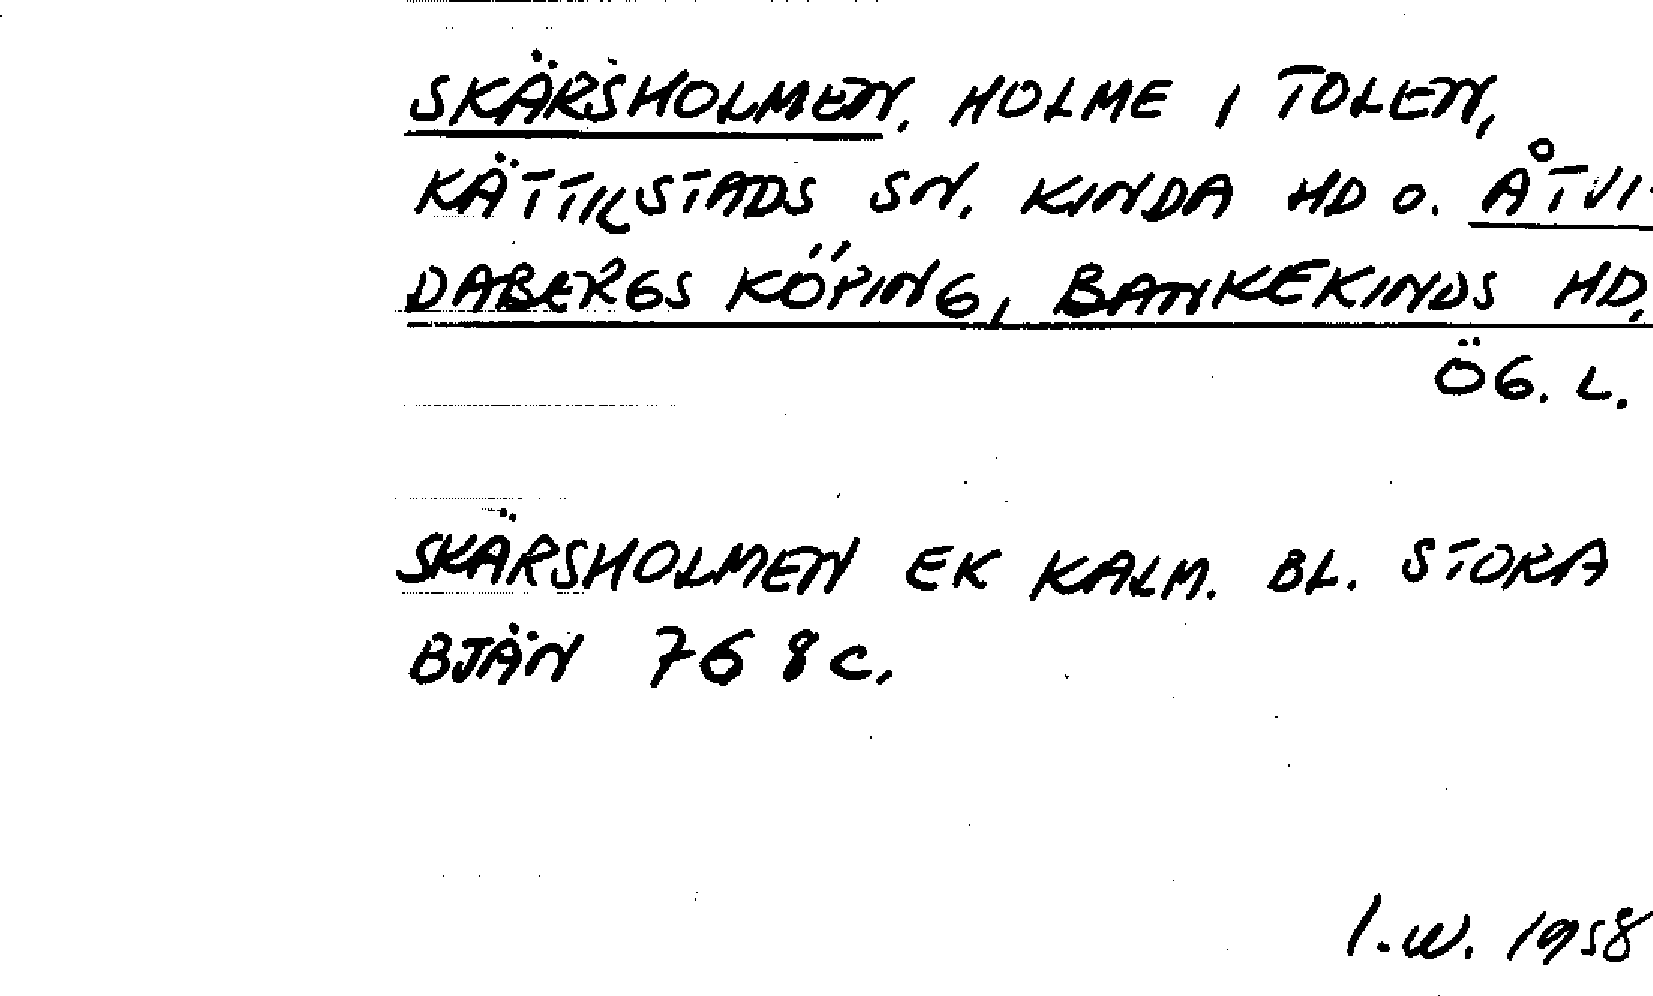 SKÄRSHOLMEN. HOLME I TOLEN,
KÄTTILSTADS SN. KINDA HD O. ÅTVI-
DABERGS KÖPING, BANKEKINDS HD.
ÖG. L.
SKÄRSHOLMEN EK KALM. BL. STORA
BJÄN 76 8 C.
I.W. 1958